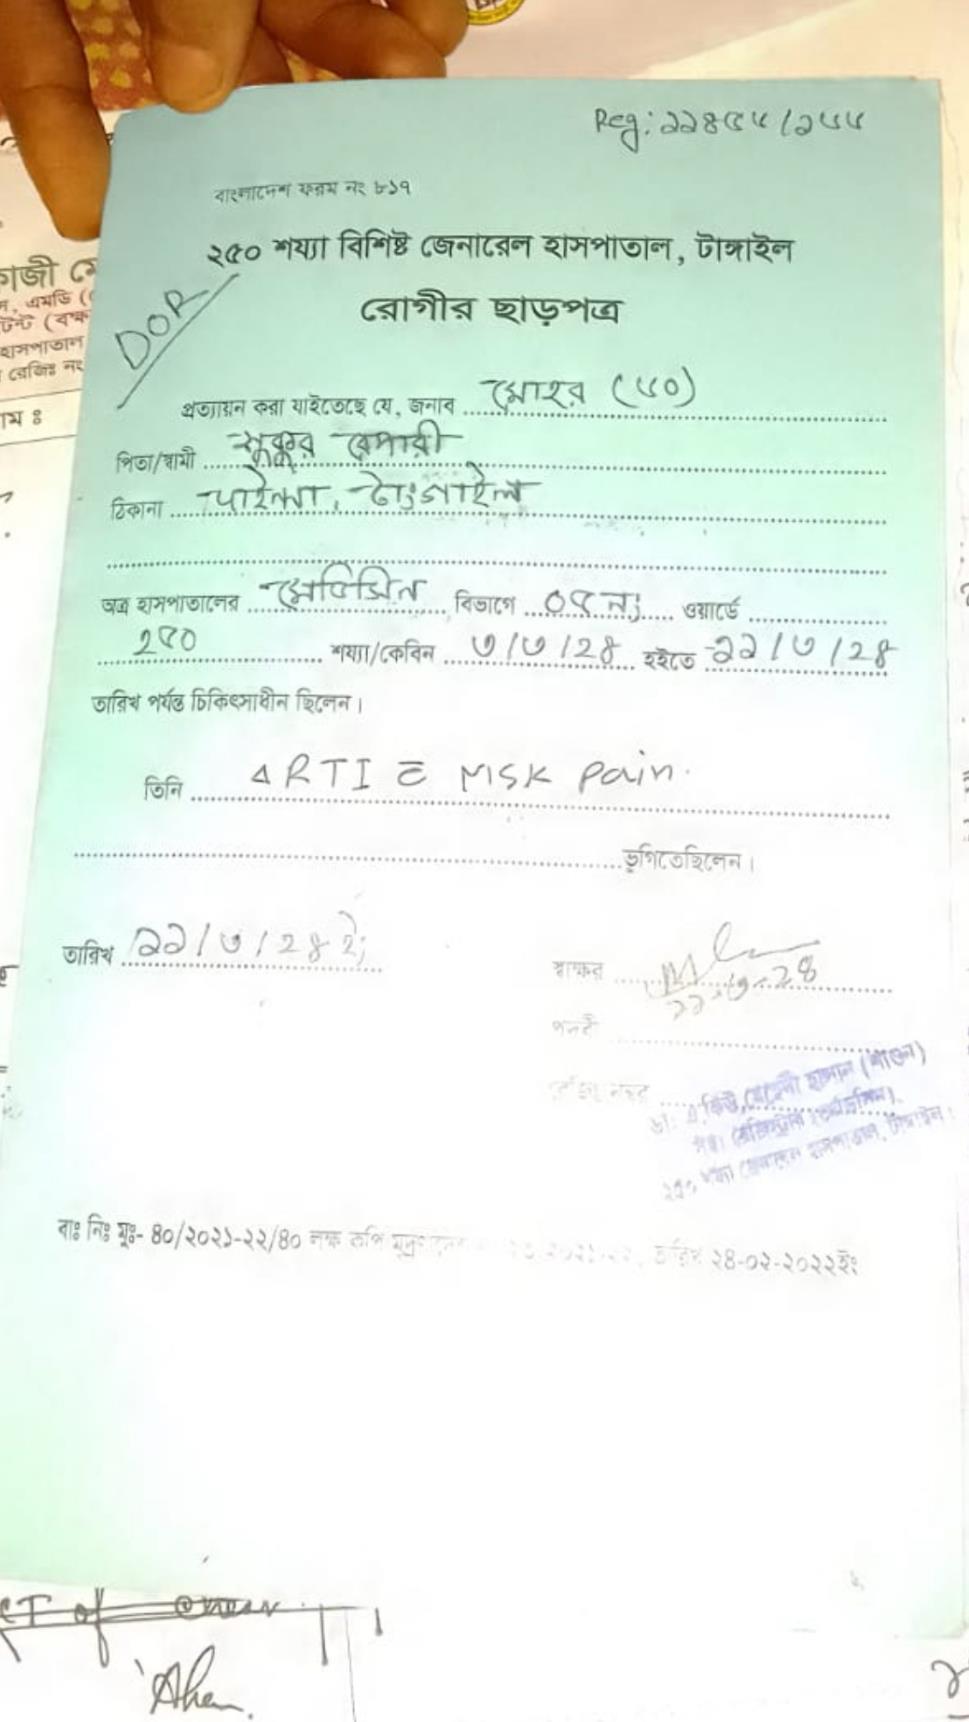 Reg: ১১৪৫৬/১৬৬
বাংলাদেশ ফরম নং ৮১৭
২৫০ শয্যা বিশিষ্ট জেনারেল হাসপাতাল, টাঙ্গাইল
DOR
রোগীর ছাড়পত্র
প্রত্যায়ন করা যাইতেছে যে, জনাব মোহর (৬০)
পিতা/স্বামী সুকুর বেপারী
ঠিকানা পাইন্জা, টাংগাইল
অত্র হাসপাতালের মেডিসিন বিভাগে ০৫ নং ওয়ার্ডে
২৫০ শয্যা/কেবিন ৩/৩/২৪ হইতে ১১/৩/২৪
তারিখ পর্যন্ত চিকিৎসাধীন ছিলেন।
তিনি Δ RTI c̄ MSK pain.
ভুগিতেছিলেন।
তারিখ ১১/৩/২৪ ইং
স্বাক্ষর ১১.৩.২৪
পদবী
রেজিঃ নম্বর
২৫০ শয্যা জেনারেল হাসপাতাল, টাঙ্গাইল।
বাঃ নিঃ মুঃ- ৪০/২০২১-২২/৪০ লক্ষ কপি তারিখ ২৪-০২-২০২২ইং
কাজী
এমডি
হাসপাতাল
রেজিঃ নং
of